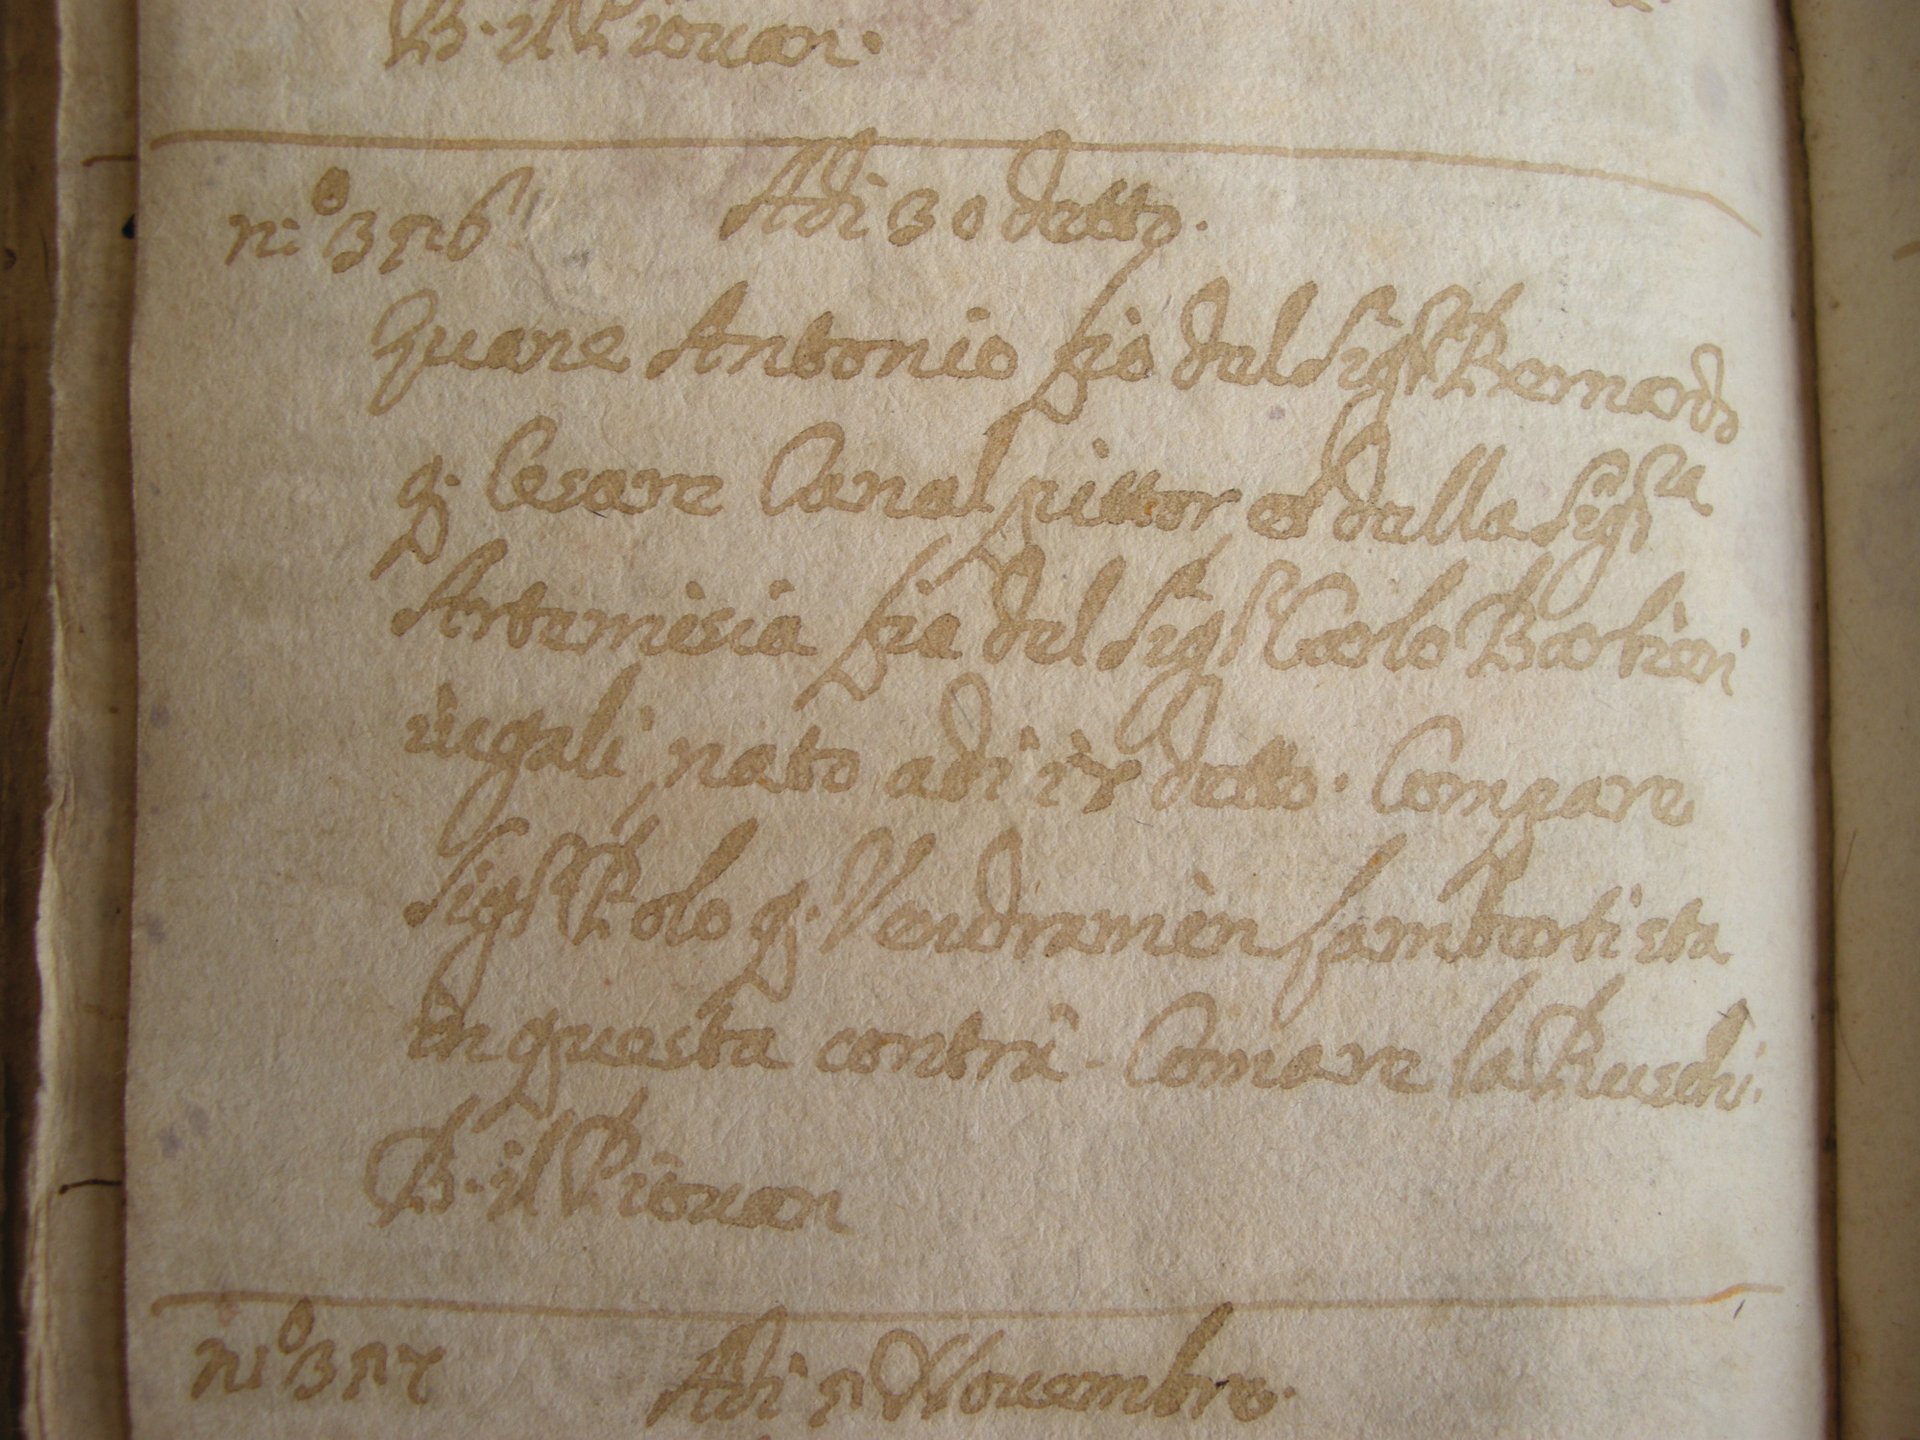 B. il Piouan.
Adi 30 detto.
n:º 356
Zuane Antonio fio del Sigr Bernardo
q. Cesare Canal pittor et della Sigra
Artemisia fia del Sigr Carlo Barbieri
iugali, nato adi 17 detto. Compare
Sigr Polo q. Vendramin Lamberti sta
in questa contrà. Comare la Ruschi.
B. il Piouan
n:º 357
Adi 5 Nouembre.